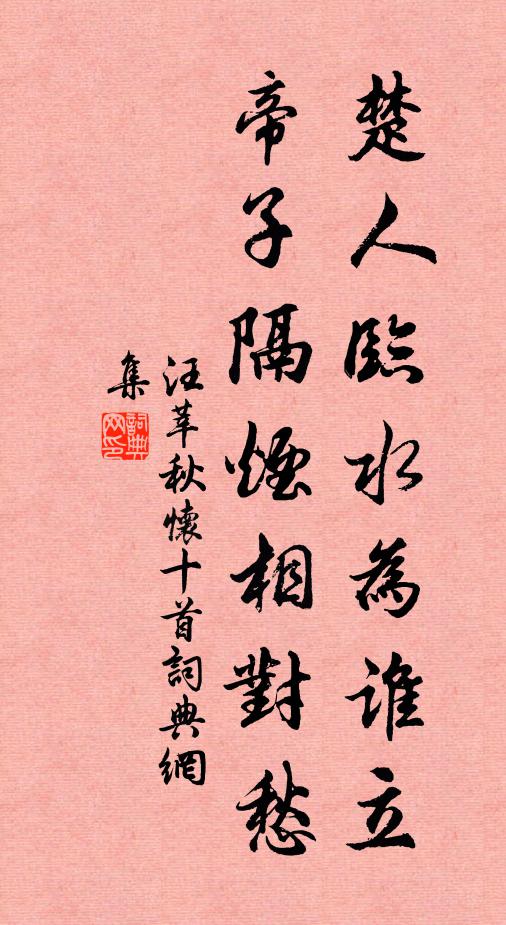 楚人臨水為誰立
帝子隔煙相對愁
汪莘秋懷十首詞典網
集
詞典網印